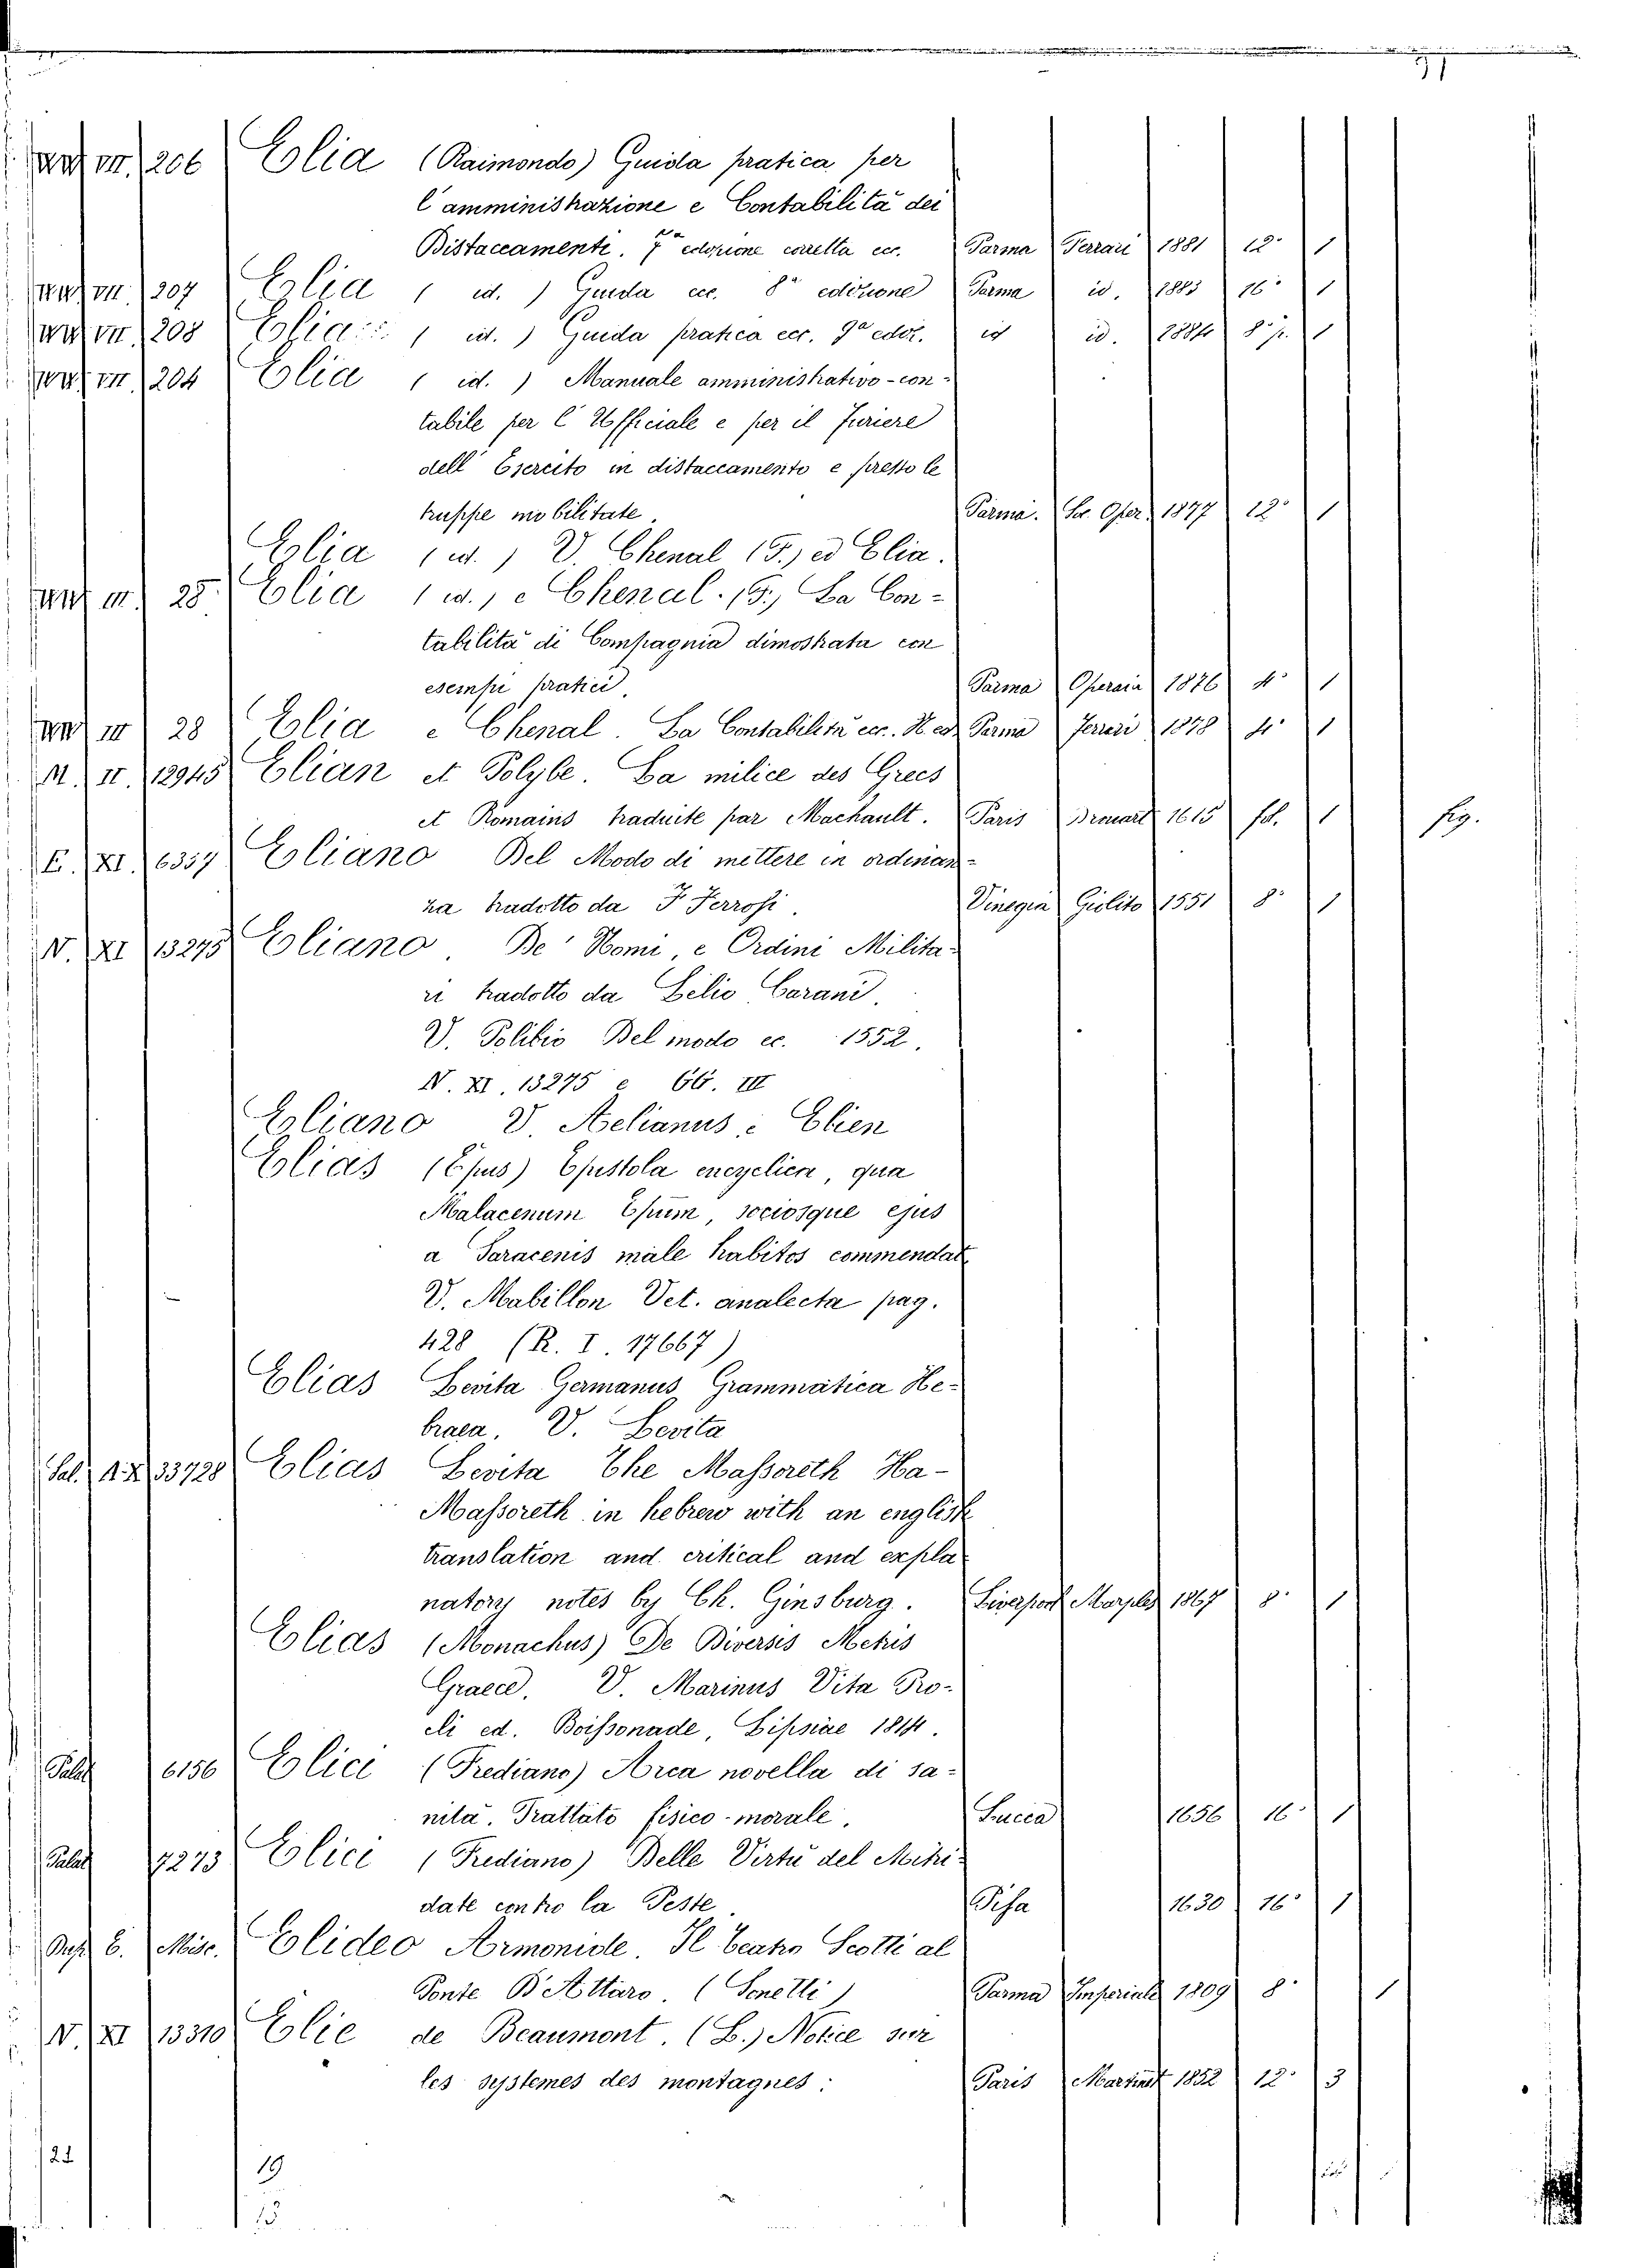 VII. 206 Elia (Raimondo) Guida pratica per
l'amministrazione e Contabilità dei
Distaccamenti. 7ª edizione corretta ecc. Parma Ferrari 1881 12° 1
VII. 207 Elia ( id. ) Guida ecc. 8ª edizione Parma id. 1883 16° 1
VII. 208 Elia ( id. ) Guida pratica ecc. 9ª ediz. id id. 1884 8° p. 1
VII. 204 Elia ( id. ) Manuale amministrativo-con-
tabile per l'Ufficiale e per il furiere
dell'Esercito in distaccamento e presso le
truppe mobilitate. Parma. Soc. Oper. 1877 12° 1
Elia ( id. ) V. Chenal (F.) ed Elia.
III. 28. Elia ( id. ) e Chenal. (F.) La Con-
tabilità di Compagnia dimostrata con
esempi pratici. Parma Operaia 1876 4° 1
III 28 Elia e Chenal. La Contabilità ecc. II ed. Parma Ferrari 1878 4° 1
M. II. 12945 Elian et Polybe. La milice des Grecs
et Romains traduite par Machault. Paris Drouart 1615 fol. 1 fig.
E. XI. 6357 Eliano Del Modo di mettere in ordinan-
za tradotto da F. Ferrosi. Vinegia Giolito 1551 8° 1
N. XI 13275 Eliano. De' Nomi, e Ordini Milita-
ri tradotto da Lelio Carani.
V. Polibio Del modo ec. 1552.
N. XI. 13275 e GG. III
Eliano V. Aelianus e Elien
Elias (Epus) Epistola encyclica, qua
Malacenum Epum, sociosque ejus
a Saracenis male habitos commendat
V. Mabillon Vet. analecta pag.
428 (R. I. 17667)
Elias Levita Germanus Grammatica He-
braea. V. Levita
Sal. A.X. 33728 Elias Levita The Massoreth Ha-
Massoreth in hebrew with an english
translation and critical and expla-
natory notes by Ch. Ginsburg. Liverpool Marples 1867 8° 1
Elias (Monachus) De Diversis Metris
Graece. V. Marinus Vita Pro-
cli ed. Boissonade, Lipsiae 1814.
Palat 6156 Elici (Frediano) Arca novella di sa-
nità. Trattato fisico-morale. Lucca 1656 16° 1
Palat 7273 Elici (Frediano) Delle Virtù del Mitri-
date contro la Peste. Pisa 1630 16° 1
6. Misc. Elideo Armonide. Il teatro Scotti al
Ponte D'Attaro. (Sonetti) Parma Imperiale 1809 8° 1
N. XI 13310 Elie de Beaumont. (L.) Notice sur
les systemes des montagnes: Paris Martinet 1852 12° 3
21
19
15